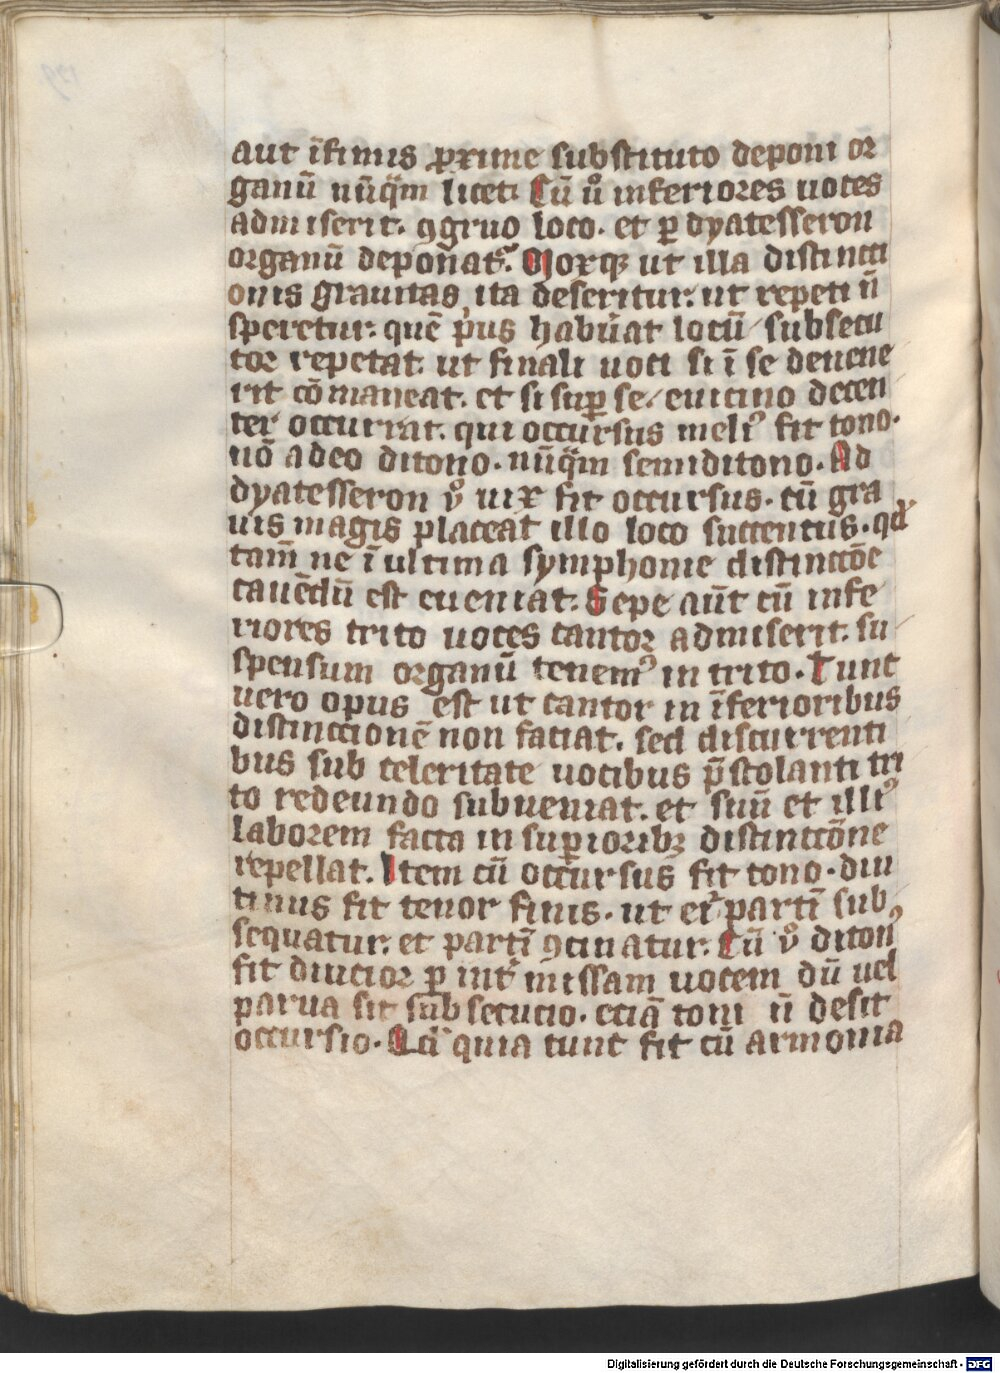 aut ĩfimis ꝓxime substituto deponi or
ganũ nũq̃m licet. Cũ ṽo inferiores uoces
admiserit. ꝯgruo loco. et ꝑ dyatesseron
organũ deponat᷑. Moxqꝫ ut illa distincti
onis grauitas ita deseritur. ut repeti ñ
speretur. quẽ pͥus habuãt locũ subsecu
tor repetat. ut finali uoci si ĩ se deuene
rit cõmaneat. et si suꝑ se euicino decen
ter occurrat. qui occursus meliꝰ fit tono.
nõ adeo ditono. nũq̃m semiditono. Ad
dyatesseron ṽo uix fit occursus. cũ gra
uis magis placeat illo loco succentus. qd̛
tam̃ ne ĩ ultima symphonie distinccõe
cauẽdũ est eueniat. Sepe aũt cũ infe
riores trito uoces cantor admiserit. su
spensum organũ tenemꝰ in trito. Tunc
uero opus est ut cantor in ĩferioribus
distinccionẽ non faciat. sed discurrenti
bus sub celeritate uocibus p̃stolanti tri
to redeundo subueniat. et suũ et illiꝰ
laborem facta in suꝑioribꝫ distinccõne
repellat. Item cũ occursus fit tono. diu
tinus fit tenor finis. ut ei᷑ partĩ sub
sequatur. et partĩ ꝯcinatur. Cũ ṽo ditonꝰ
fit diucior ꝑ int᷑missam uocem dũ uel
parua sit subsecucio. eciã toni ñ desit
occursio. quia tunc fit cũ armonia
Digitalisierung gefördert durch die Deutsche Forschungsgemeinschaft - DFG